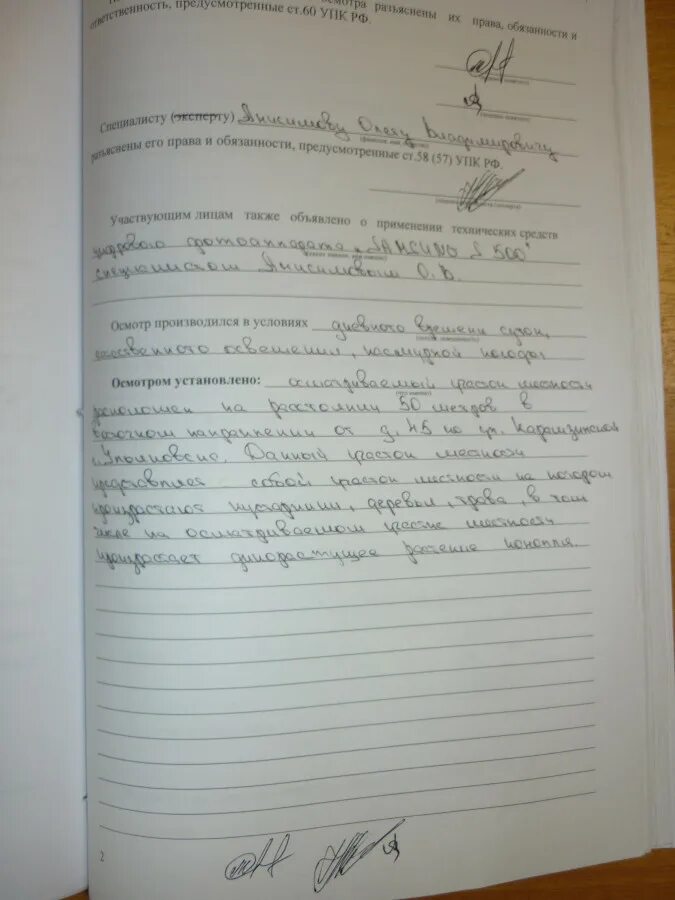 осмотра разъяснены их права, обязанности и
ответственность, предусмотренные ст.60 УПК РФ.
Специалисту (эксперту) Анисимову Олегу Владимировичу
разъяснены его права и обязанности, предусмотренные ст.58 (57) УПК РФ.
Участвующим лицам также объявлено о применении технических средств
цифрового фотоаппарата "SAMSUNG S 500"
специалистом Анисимовым О.В.
Осмотр производился в условиях дневного времени суток,
естественного освещения, пасмурной погоды
Осмотром установлено: осматриваемый участок местности
расположен на расстоянии 50 метров в
восточном направлении от д. 45 по ул. Карамзинской
г. Ульяновска. Данный участок местности
представляет собой участок местности на котором
произрастают кустарники, деревья, трава, в том
числе на осматриваемом участке местности
произрастает дикорастущее растение конопля.
2